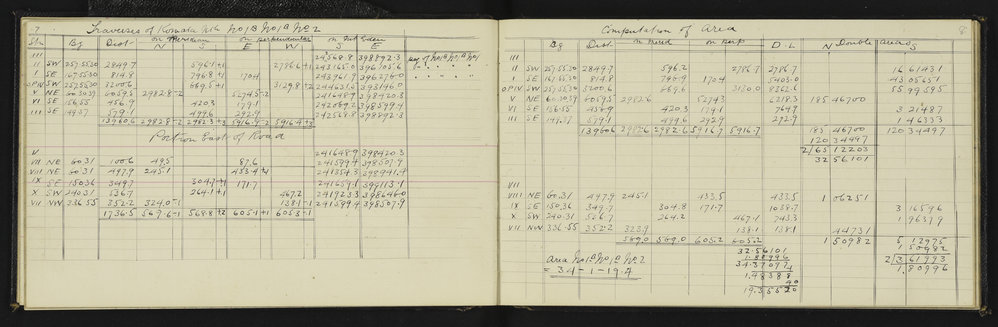 7
Traverses of Komata Nth No1B No1A No2
on Meridian on perpendicular on Mt Eden
Stn Bg Dist N S E W S E
III 242568.8 398892.3
II SW 257.55.30 2849.7 596.1+1 2786.6+1 243165.0 396105.6
I SE 167.55.30 814.8 796.8+1 170.4 243961.9 396276.0
OP IV SW 257.55.30 3200.6
V NE 60.30.37 6059.5 2982.8-2 5274.5-2 241648.9 398420.3
VI SE 156.55 456.9 420.3 179.1 242069.2 398599.4
III SE 149.37 579.1 499.6 292.9 242568.8 398892.3
13960.6 2982.8-2 2982.3+3 5916.9-2 5916.4+3
Portion East of Road
V 241648.9 398420.3
VII NE 60.31 100.6 49.5 87.6 241599.4 398507.9
VIII NE 60.31 497.9 245.1 433.4+1 241354.3 398941.4
IX SE 150.36 349.7 304.7+1 171.7 241659.1 399113.1
X SW 240.31 536.7 264.1+1 467.2 241923.3 398646.0
VII NW 336.55 352.2 324.0-1 138.1-1 241599.4 398507.9
1736.5 569.6-1 568.8+2 605.1+1 605.3-1
8
Computation of Area
on merid on perp Double areas
Bg Dist D.L N S
III
II SW 257.55.30 2849.7 596.2 2786.7 2786.7 16 61431
I SE 167.55.30 814.8 796.9 170.4 5403.0 43 05651
OP IV SW 257.55.30 3200.6 669.6 3130.0 8362.6 55 99595
V NE 60.30.37 6059.5 2982.6 5274.3 6218.3 185 46700
VI SE 156.55 456.9 420.3 179.1 764.9 3 21487
III SE 149.37 579.1 499.6 292.9 292.9 1 46333
13960.6 2982.6 2982.6 5916.7 5916.7 185 46700 120 34497
120 34497
2/65 12203
32 56101
VII
VIII NE 60.31 497.9 245.1 433.5 433.5 1 06251
IX SE 150.36 349.7 304.8 171.7 1038.7 3 16596
X SW 240.31 536.7 264.2 467.1 743.3 1 96379
VII NW 336.55 352.2 323.9 138.1 138.1 44731
569.0 569.0 605.2 605.2 1 50982 5 12975
1 50982
2/3 61993
1.80996
Area No1B No1A No2
= 34-1-19.4
32.56101
34.37097
4
1.48388
40
19.35520